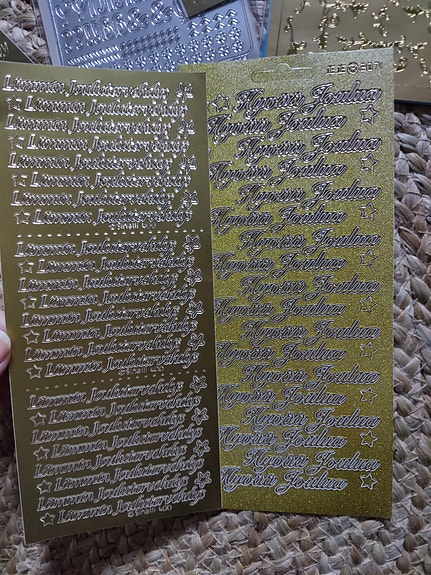 Lämmin Joulutervehdys
Lämmin Joulutervehdys
Lämmin Joulutervehdys
Lämmin Joulutervehdys
Lämmin Joulutervehdys
Lämmin Joulutervehdys
Lämmin Joulutervehdys
Lämmin Joulutervehdys
© Sinelli 400
Lämmin Joulutervehdys
Lämmin Joulutervehdys
Lämmin Joulutervehdys
Lämmin Joulutervehdys
Lämmin Joulutervehdys
Lämmin Joulutervehdys
Lämmin Joulutervehdys
Lämmin Joulutervehdys
© Sinelli 400
Lämmin Joulutervehdys
Lämmin Joulutervehdys
Lämmin Joulutervehdys
Lämmin Joulutervehdys
Lämmin Joulutervehdys
Lämmin Joulutervehdys
Lämmin Joulutervehdys
Lämmin Joulutervehdys
© Sinelli 400
Hyvää Joulua
Hyvää Joulua
Hyvää Joulua
Hyvää Joulua
Hyvää Joulua
Hyvää Joulua
Hyvää Joulua
Hyvää Joulua
Hyvää Joulua
Hyvää Joulua
Hyvää Joulua
Hyvää Joulua
Hyvää Joulua
Hyvää Joulua
Hyvää Joulua
Hyvää Joulua
Hyvää Joulua
Hyvää Joulua